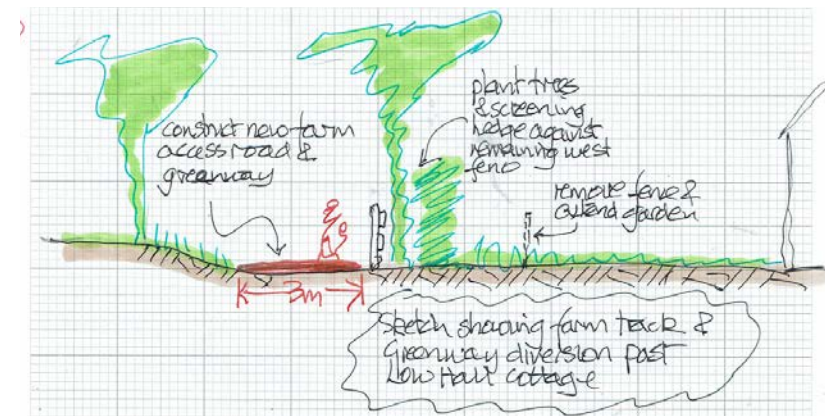 construct new farm
access road &
greenway
plant trees
& screening
hedge against
remaining west
fence
remove fence &
extend garden
3m
Sketch showing farm track &
Greenway diversion past
Low Hall Cottage